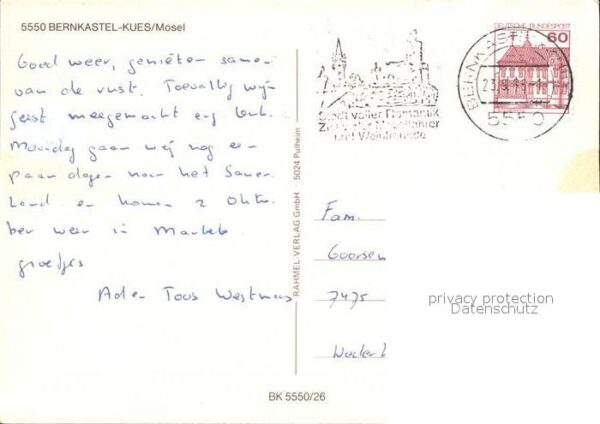 5550 BERNKASTEL-KUES/Mosel
Goed weer, genieten samen
van de rust. Toevallig wijn
feest meegemaakt erg leuk.
Maandag gaan wij nog een
paar dagen naar het Sauer
land en komen 2 Okto
ber weer in Markelo
groetjes
Ad en Toos
RAHMEL-VERLAG GmbH · 5024 Pulheim
BK 5550/26
Stadt voller Romantik
Ziel der Moselfahrer
und Weinfreunde
DEUTSCHE BUNDESPOST
60
BERNKASTEL-KUES
5550
Fam.
Goorsen
7475
privacy protection
Datenschutz